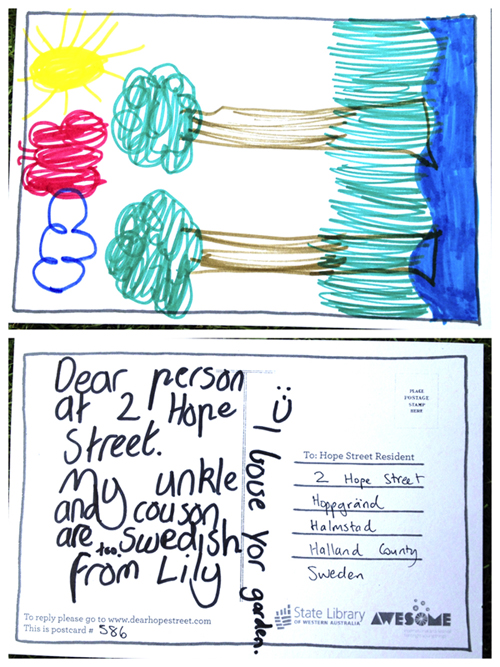 Dear person
at 2 Hope
Street.
My unkle
and couson
are too Swedish
from Lily
To reply please go to www.dearhopestreet.com
This is postcard # 586
:) I house yor garden.
PLACE
POSTAGE
STAMP
HERE
To: Hope Street Resident
2 Hope Street
Hoppgränd
Halmstad
Halland County
Sweden
State Library
OF WESTERN AUSTRALIA
AWESOME